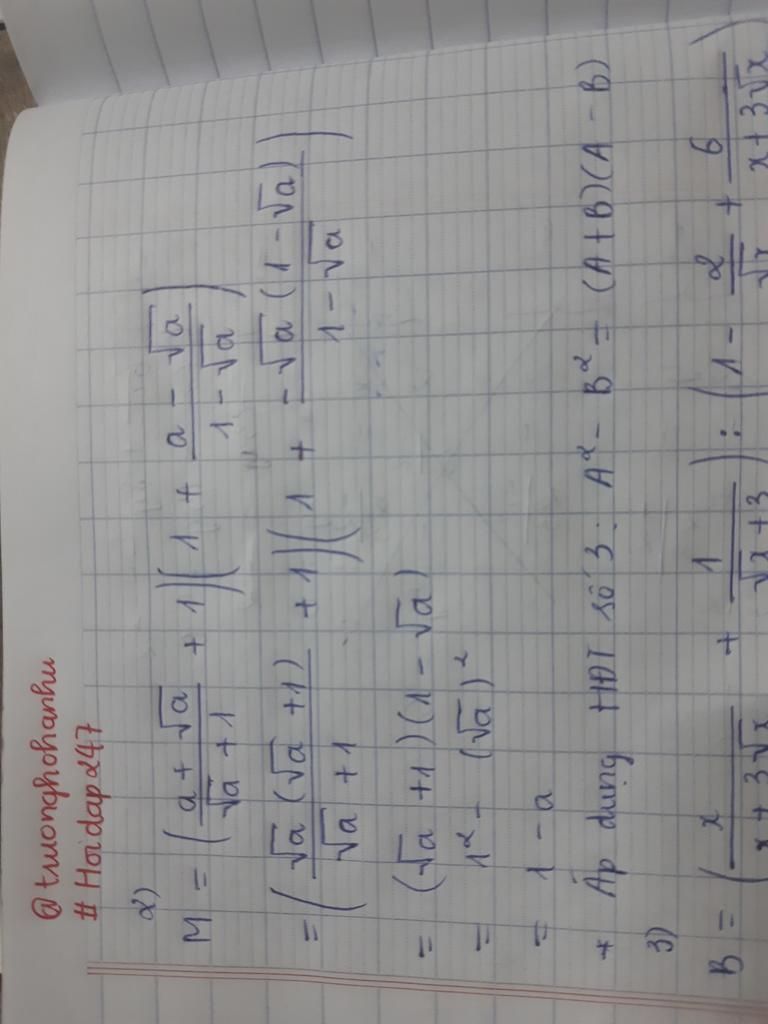 @truonghohanhu
# Hoidap247
2)
M = ( (a + √a)/(√a + 1) + 1 )( 1 + (a - √a)/(1 - √a) )
= ( (√a (√a + 1))/(√a + 1) + 1 )( 1 + (-√a (1 - √a))/(1 - √a) )
= (√a + 1)(1 - √a)
= 1² - (√a)²
= 1 - a
+ Áp dụng HĐT số 3: A² - B² = (A + B)(A - B)
3)
B = ( x/(x + 3√x) + 1/(√x + 3) ) : ( 1 - 2/√x + 6/(x + 3√x) )